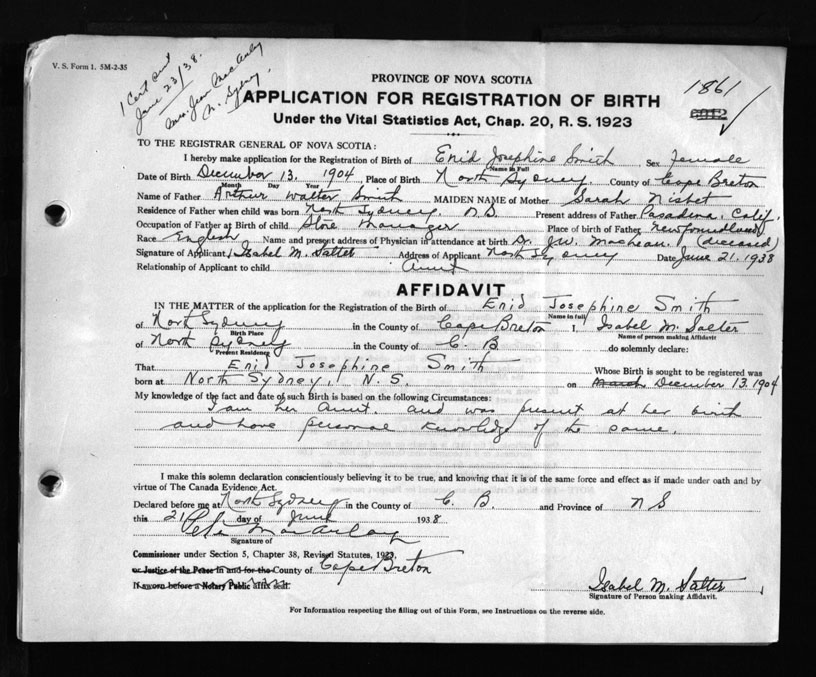 V. S. Form 1. 5M-2-35
1 Cert sent
June 23/38.
Mrs. Jean MacAulay
N. Sydney.
PROVINCE OF NOVA SCOTIA
1861
APPLICATION FOR REGISTRATION OF BIRTH
Under the Vital Statistics Act, Chap. 20, R. S. 1923
TO THE REGISTRAR GENERAL OF NOVA SCOTIA:
I hereby make application for the Registration of Birth of Enid Josephine Smith Sex Female
Name in Full
Date of Birth December 13. 1904 Place of Birth North Sydney. County of Cape Breton
Month Day Year
Name of Father Arthur Walter Smith MAIDEN NAME of Mother Sarah Nisbet
Residence of Father when child was born North Sydney, N.S. Present address of Father Pasadena, Calif.
Occupation of Father at Birth of child Store Manager Place of birth of Father Newfoundland
Race English Name and present address of Physician in attendance at birth Dr. J.W. MacLean. (deceased)
Signature of Applicant Isabel M. Salter Address of Applicant North Sydney Date June 21. 1938
Relationship of Applicant to child Aunt
AFFIDAVIT
IN THE MATTER of the application for the Registration of the Birth of Enid Josephine Smith
Name in full
of North Sydney in the County of Cape Breton I, Isabel M. Salter
Birth Place Name of person making Affidavit
of North Sydney in the County of C. B. do solemnly declare:
Present Residence
That Enid Josephine Smith Whose Birth is sought to be registered was
born at North Sydney, N. S. on March December 13. 1904
My knowledge of the fact and date of such Birth is based on the following Circumstances:
I am her Aunt. and was present at her birth
and have personal knowledge of the same.
I make this solemn declaration conscientiously believing it to be true, and knowing that it is of the same force and effect as if made under oath and by
virtue of The Canada Evidence Act.
Declared before me at North Sydney in the County of C. B. and Province of N S
this 21 day of June 1938
MacAulay
Signature of
Commissioner under Section 5, Chapter 38, Revised Statutes, 1923,
or Justice of the Peace in and for the County of Cape Breton
If sworn before a Notary Public affix seal.
Isabel M. Salter
Signature of Person making Affidavit.
For Information respecting the filling out of this Form, see Instructions on the reverse side.